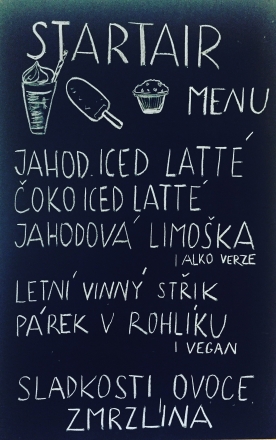 STARTAIR
MENU
JAHOD. ICED LATTÉ
ČOKO ICED LATTÉ
JAHODOVÁ LIMOŠKA
I ALKO VERZE
LETNÍ VINNÝ STŘIK
PÁREK V ROHLÍKU
I VEGAN
SLADKOSTI, OVOCE
ZMRZLINA